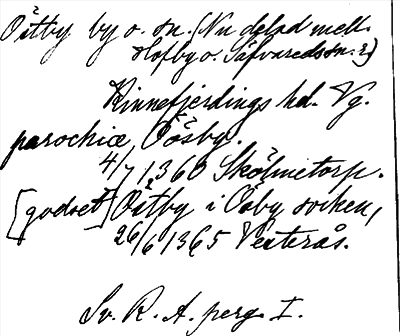 Östby by o. sn. (Nu delad mell.
Hofby o. Säfvaredssn. ?)
Kinnefjerdings hd. Vg.
parochiæ, Ösby.
4/7 1360 Skölmetorp.
[godset] Östby i Ösby socken,
26/6 1365 Vesterås.
Sv. R. A. perg. I.